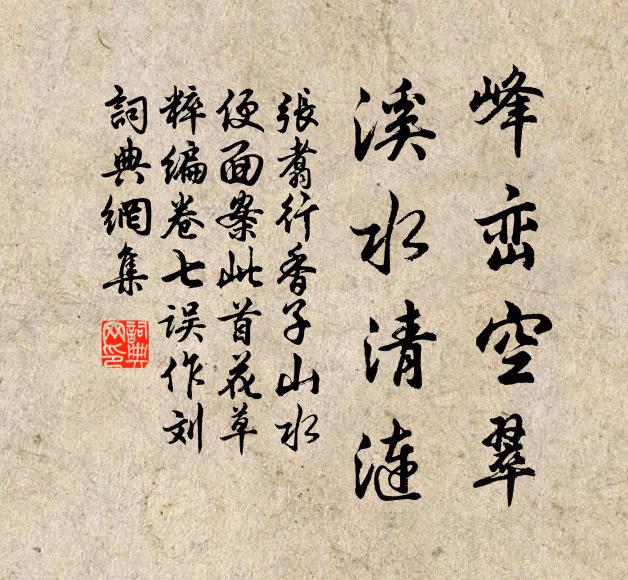 峰峦空翠
溪水清涟
張翥行香子山水
便面案此首花草
粹编卷七误作刘
詞典網集
詞典网印